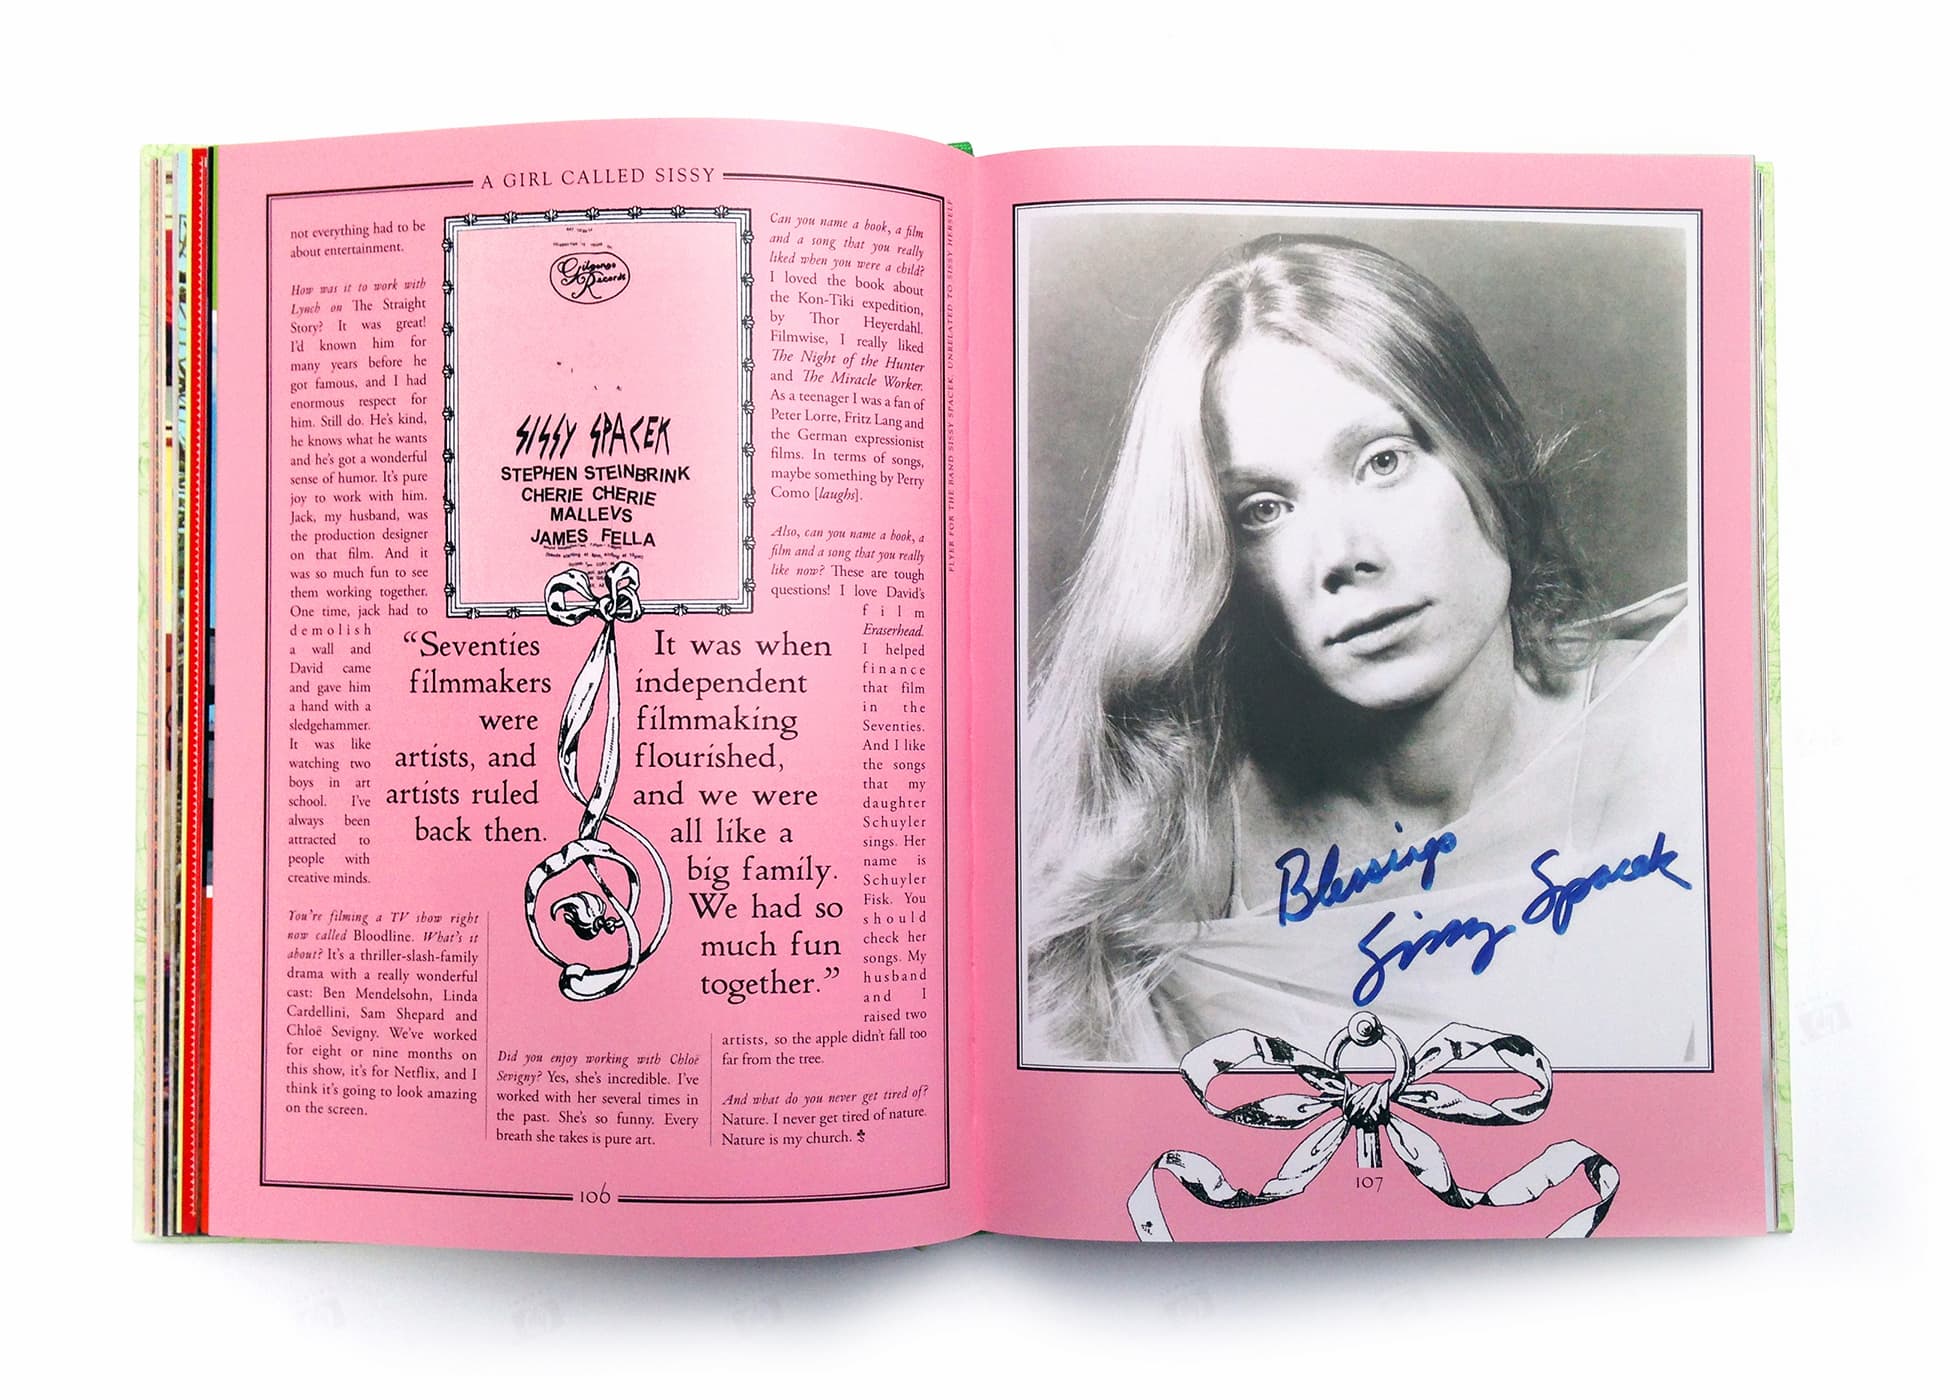 A GIRL CALLED SISSY
not everything had to be
about entertainment.
How was it to work with
Lynch on The Straight
Story? It was great!
I'd known him for
many years before he
got famous, and I had
enormous respect for
him. Still do. He's kind,
he knows what he wants
and he's got a wonderful
sense of humor. It's pure
joy to work with him.
Jack, my husband, was
the production designer
on that film. And it
was so much fun to see
them working together.
One time, jack had to
demolish
a wall and
David came
and gave him
a hand with a
sledgehammer.
It was like
watching two
boys in art
school. I've
always been
attracted to
people with
creative minds.
You're filming a TV show right
now called Bloodline. What's it
about? It's a thriller-slash-family
drama with a really wonderful
cast: Ben Mendelsohn, Linda
Cardellini, Sam Shepard and
Chloë Sevigny. We've worked
for eight or nine months on
this show, it's for Netflix, and I
think it's going to look amazing
on the screen.
Gilgongo
Records
SISSY SPACEK
STEPHEN STEINBRINK
CHERIE CHERIE
MALLEVS
JAMES FELLA
“Seventies
filmmakers
were
artists, and
artists ruled
back then.
It was when
independent
filmmaking
flourished,
and we were
all like a
big family.
We had so
much fun
together.”
Did you enjoy working with Chloë
Sevigny? Yes, she's incredible. I've
worked with her several times in
the past. She's so funny. Every
breath she takes is pure art.
Can you name a book, a film
and a song that you really
liked when you were a child?
I loved the book about
the Kon-Tiki expedition,
by Thor Heyerdahl.
Filmwise, I really liked
The Night of the Hunter
and The Miracle Worker.
As a teenager I was a fan of
Peter Lorre, Fritz Lang and
the German expressionist
films. In terms of songs,
maybe something by Perry
Como [laughs].
Also, can you name a book, a
film and a song that you really
like now? These are tough
questions! I love David's
film
Eraserhead.
I helped
finance
that film
in the
Seventies.
And I like
the songs
that my
daughter
Schuyler
sings. Her
name is
Schuyler
Fisk. You
should
check her
songs. My
husband
and I
raised two
artists, so the apple didn't fall too
far from the tree.
And what do you never get tired of?
Nature. I never get tired of nature.
Nature is my church.
106
FLYER FOR THE BAND SISSY SPACEK, UNRELATED TO SISSY HERSELF
Blessings
Sissy Spacek
107